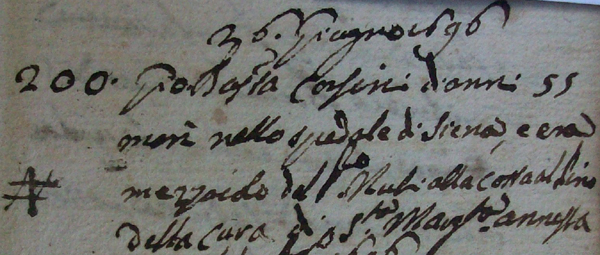 26. Giugno 1696
200. Gio Batta Corsini d'anni 55
morì nello spedale di Siena, e era
mezzaiolo del Nuti alla Costa al Pino
della Cura di S.to annessa